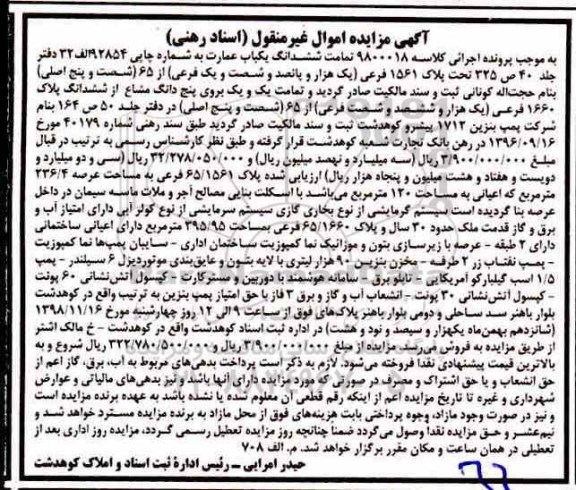 آگهی مزایده اموال غیرمنقول (اسناد رهنی)
به موجب پرونده اجرائی کلاسه ۹۸۰۰۰۱۸ تمامت ششدانگ یکباب عمارت به شماره چاپی ۹۲۸۵۴الف۳۲ دفتر
جلد ۴۰ ص ۳۲۵ تحت پلاک ۱۵۶۱ فرعی (یک هزار و پانصد و شصت و یک فرعی) از ۶۵ (شصت و پنج اصلی)
بنام حجت‌اله کونانی ثبت و سند مالکیت صادر گردید و تمامت یک و یک بروی پنج دانگ مشاع از ششدانگ پلاک
۱۶۶۰ فرعی (یک هزار و ششصد و شصت فرعی) از ۶۵ (شصت و پنج اصلی) در دفتر جلد ۵۰ ص ۱۶۴ بنام
شرکت پمپ بنزین ۱۷۱۲ پیشرو کوهدشت ثبت و سند مالکیت صادر گردید طبق سند رهنی شماره ۴۰۱۷۹ مورخ
۱۳۹۶/۰۹/۱۶ در رهن بانک تجارت شعبه کوهدشت قرار گرفته و طبق نظر کارشناس رسمی به ترتیب در قبال
مبلغ ۳/۹۰۰/۰۰۰/۰۰۰ ریال (سه میلیارد و نهصد میلیون ریال) و ۳۲/۲۷۸/۰۵۰/۰۰۰ ریال (سی و دو میلیارد و
دویست و هفتاد و هشت میلیون و پنجاه هزار ریال) ارزیابی شده پلاک ۶۵/۱۵۶۱ فرعی به مساحت عرصه ۲۳۶/۴
مترمربع که اعیانی به مساحت ۱۲۰ مترمربع می‌باشد با اسکلت بنایی مصالح آجر و ملات ماسه سیمان در داخل
عرصه بنا گردیده است سیستم گرمایشی از نوع بخاری گازی سیستم سرمایشی از نوع کولر آبی دارای امتیاز آب و
برق و گاز قدمت ملک حدود ۳۰ سال و پلاک ۶۵/۱۶۶۰ فرعی بمساحت ۳۹۵/۹۵ مترمربع دارای اعیانی ساختمانی
دارای ۲ طبقه - عرصه با زیرسازی بتون و موزائیک نما کمپوزیت ساختمان اداری - سایبان پمپ‌ها نما کمپوزیت
- پمپ نفتاب زر ۲ طرفه - مخزن بنزین ۹۰ هزار لیتری با لایه بشون و عایق‌بندی موتوردیزل ۶ سیلندر - پمپ
۱/۵ اسب گیلبارکو آمریکایی - تابلو برق - سامانه هوشمند با دوربین و مسترکارت - کپسول آتش‌نشانی ۶۰ پونت
- کپسول آتش‌نشانی ۳۰ پونت - انشعاب آب و گاز و برق ۳ فاز با حق امتیاز پمپ بنزین به ترتیب واقع در کوهدشت
بلوار باهنر سد ساحلی و دومی بلوار باهنر پلاک‌های فوق از ساعت ۹ الی ۱۲ روز چهارشنبه مورخ ۱۳۹۸/۱۱/۱۶
(شانزدهم بهمن‌ماه یکهزار و سیصد و نود و هشت) در اداره ثبت اسناد کوهدشت واقع در کوهدشت - خ مالک اشتر
از طریق مزایده به فروش می‌رسد. مزایده از مبلغ ۳/۹۰۰/۰۰۰/۰۰۰ ریال و ۳۲۲/۷۸۰/۵۰۰/۰۰۰ ریال شروع و به
بالاترین قیمت پیشنهادی نقدا فروخته می‌شود. لازم به ذکر است پرداخت بدهی‌های مربوط به آب، برق، گاز اعم از
حق انشعاب و یا حق اشتراک و مصرف در صورتی که مورد مزایده دارای آنها باشد و نیز بدهی‌های مالیاتی و عوارض
شهرداری و غیره تا تاریخ مزایده اعم از اینکه رقم قطعی آن معلوم شده یا نشده باشد به عهده برنده مزایده است
و نیز در صورت وجود مازاد، وجوه پرداختی بابت هزینه‌های فوق از محل مازاد به برنده مزایده مسترد خواهد شد و
نیم‌عشر و حق مزایده نقدا وصول می‌گردد ضمناً چنانچه روز مزایده تعطیل رسمی گردد، مزایده روز اداری بعد از
تعطیلی در همان ساعت و مکان مقرر برگزار خواهد شد. م. الف ۷۰۸
حیدر امرایی - رئیس ادارهٔ ثبت اسناد و املاک کوهدشت